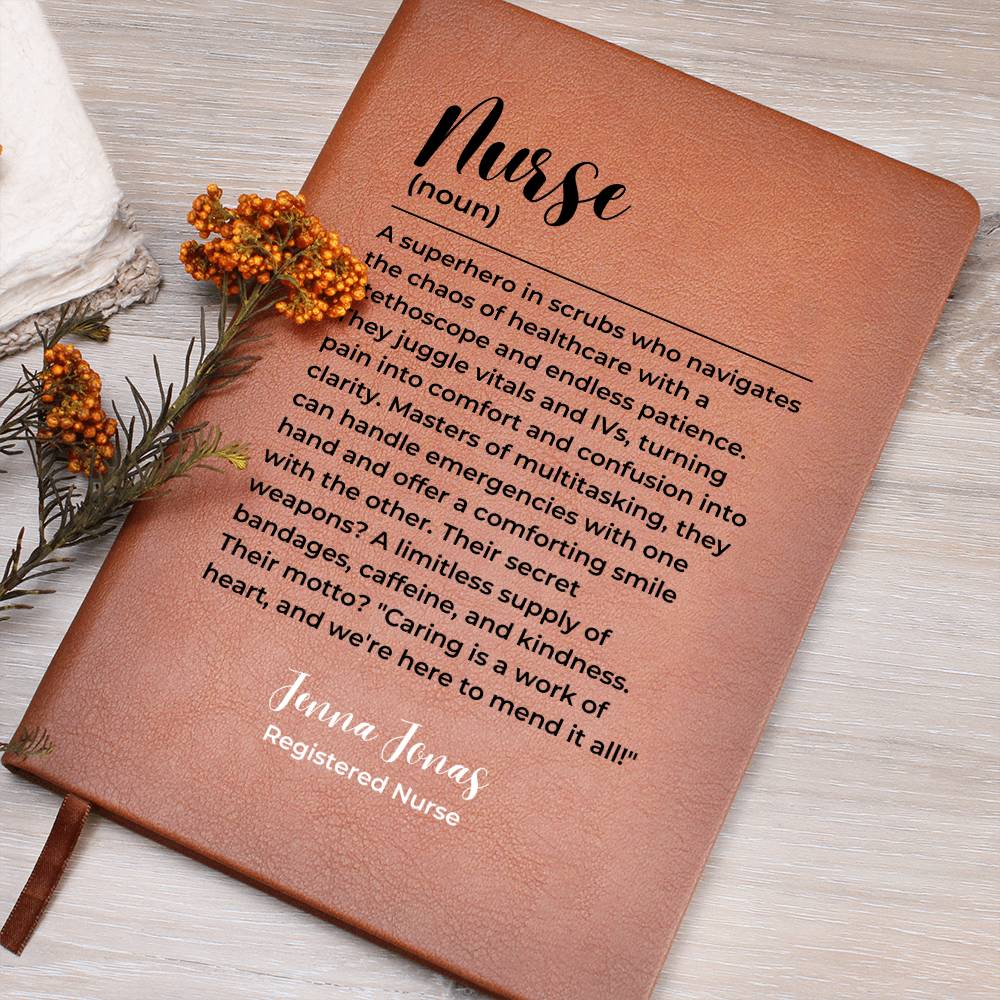 Nurse
(noun)
A superhero in scrubs who navigates
the chaos of healthcare with a
tethoscope and endless patience.
They juggle vitals and IVs, turning
pain into comfort and confusion into
clarity. Masters of multitasking, they
can handle emergencies with one
hand and offer a comforting smile
with the other. Their secret
weapons? A limitless supply of
bandages, caffeine, and kindness.
Their motto? "Caring is a work of
heart, and we're here to mend it all!"
Jenna Jonas
Registered Nurse